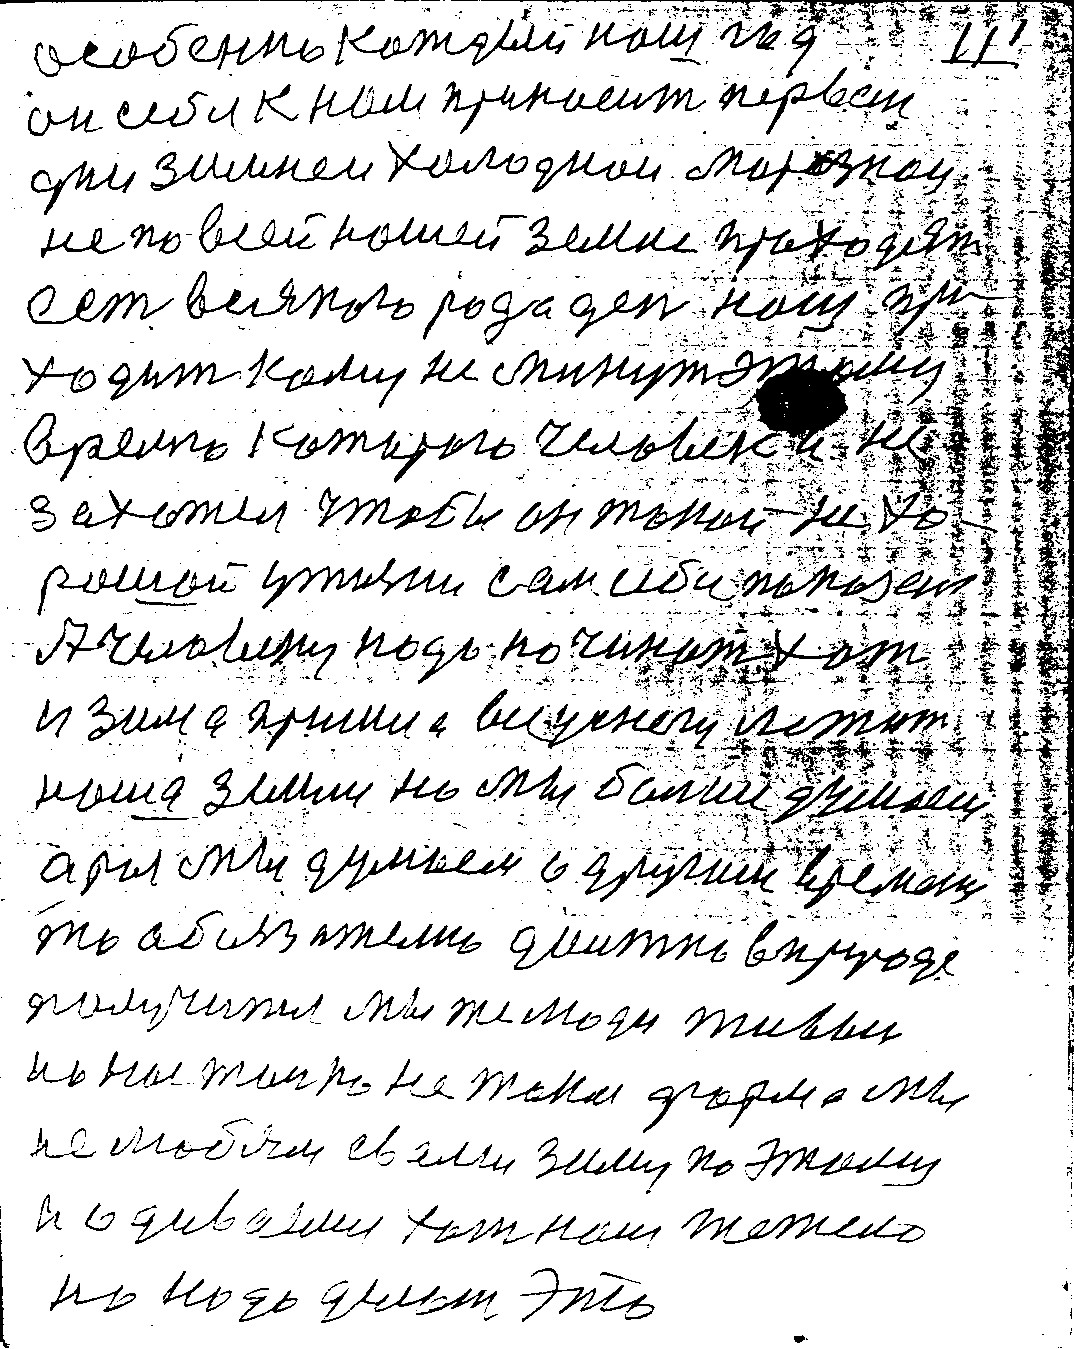 особенно каждый наш год 11
он себя к нам приносит первыи
дни зимнеи холоднои морознои
не по всей нашей земле приходят
ест всякого рода ден наш при
ходит кому не минут этому
время которого человек и не
захотел чтобы он такой не хо
рошой у жизни сам себе показал
А человеку надо начинат хот
и зима пришла в снегу лежит
наша земля но мы болше думаем
а раз мы думаем о другим времени
то обязателно должно в природе
получится мы же люди живыи
но настолко не такая форма мы
не любим сваю зиму по этому
и одиваемся хот нам тежело
но надо делат это